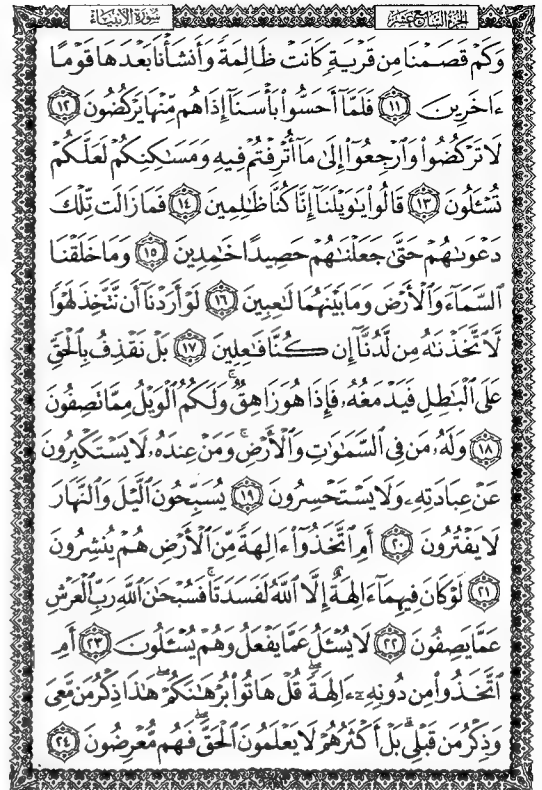 سُورَةُ الأَنبِيَاء
الجُزْءُ السَّابِعَ عَشَرَ
وَكَمْ قَصَمْنَا مِن قَرْيَةٍ كَانَتْ ظَالِمَةً وَأَنشَأْنَا بَعْدَهَا قَوْمًا
ءَاخَرِينَ ﴿١١﴾ فَلَمَّآ أَحَسُّوا۟ بَأْسَنَآ إِذَا هُم مِّنْهَا يَرْكُضُونَ ﴿١٢﴾
لَا تَرْكُضُوا۟ وَٱرْجِعُوٓا۟ إِلَىٰ مَآ أُتْرِفْتُمْ فِيهِ وَمَسَـٰكِنِكُمْ لَعَلَّكُمْ
تُسْـَٔلُونَ ﴿١٣﴾ قَالُوا۟ يَـٰوَيْلَنَآ إِنَّا كُنَّا ظَـٰلِمِينَ ﴿١٤﴾ فَمَا زَالَت تِّلْكَ
دَعْوَىٰهُمْ حَتَّىٰ جَعَلْنَـٰهُمْ حَصِيدًا خَـٰمِدِينَ ﴿١٥﴾ وَمَا خَلَقْنَا
ٱلسَّمَآءَ وَٱلْأَرْضَ وَمَا بَيْنَهُمَا لَـٰعِبِينَ ﴿١٦﴾ لَوْ أَرَدْنَآ أَن نَّتَّخِذَ لَهْوًا
لَّٱتَّخَذْنَـٰهُ مِن لَّدُنَّآ إِن كُنَّا فَـٰعِلِينَ ﴿١٧﴾ بَلْ نَقْذِفُ بِٱلْحَقِّ
عَلَى ٱلْبَـٰطِلِ فَيَدْمَغُهُۥ فَإِذَا هُوَ زَاهِقٌ ۚ وَلَكُمُ ٱلْوَيْلُ مِمَّا تَصِفُونَ
﴿١٨﴾ وَلَهُۥ مَن فِى ٱلسَّمَـٰوَٰتِ وَٱلْأَرْضِ ۚ وَمَنْ عِندَهُۥ لَا يَسْتَكْبِرُونَ
عَنْ عِبَادَتِهِۦ وَلَا يَسْتَحْسِرُونَ ﴿١٩﴾ يُسَبِّحُونَ ٱلَّيْلَ وَٱلنَّهَارَ
لَا يَفْتُرُونَ ﴿٢٠﴾ أَمِ ٱتَّخَذُوٓا۟ ءَالِهَةً مِّنَ ٱلْأَرْضِ هُمْ يُنشِرُونَ
﴿٢١﴾ لَوْ كَانَ فِيهِمَآ ءَالِهَةٌ إِلَّا ٱللَّهُ لَفَسَدَتَا ۚ فَسُبْحَـٰنَ ٱللَّهِ رَبِّ ٱلْعَرْشِ
عَمَّا يَصِفُونَ ﴿٢٢﴾ لَا يُسْـَٔلُ عَمَّا يَفْعَلُ وَهُمْ يُسْـَٔلُونَ ﴿٢٣﴾ أَمِ
ٱتَّخَذُوا۟ مِن دُونِهِۦٓ ءَالِهَةً ۖ قُلْ هَاتُوا۟ بُرْهَـٰنَكُمْ ۖ هَـٰذَا ذِكْرُ مَن مَّعِىَ
وَذِكْرُ مَن قَبْلِى ۗ بَلْ أَكْثَرُهُمْ لَا يَعْلَمُونَ ٱلْحَقَّ ۖ فَهُم مُّعْرِضُونَ ﴿٢٤﴾